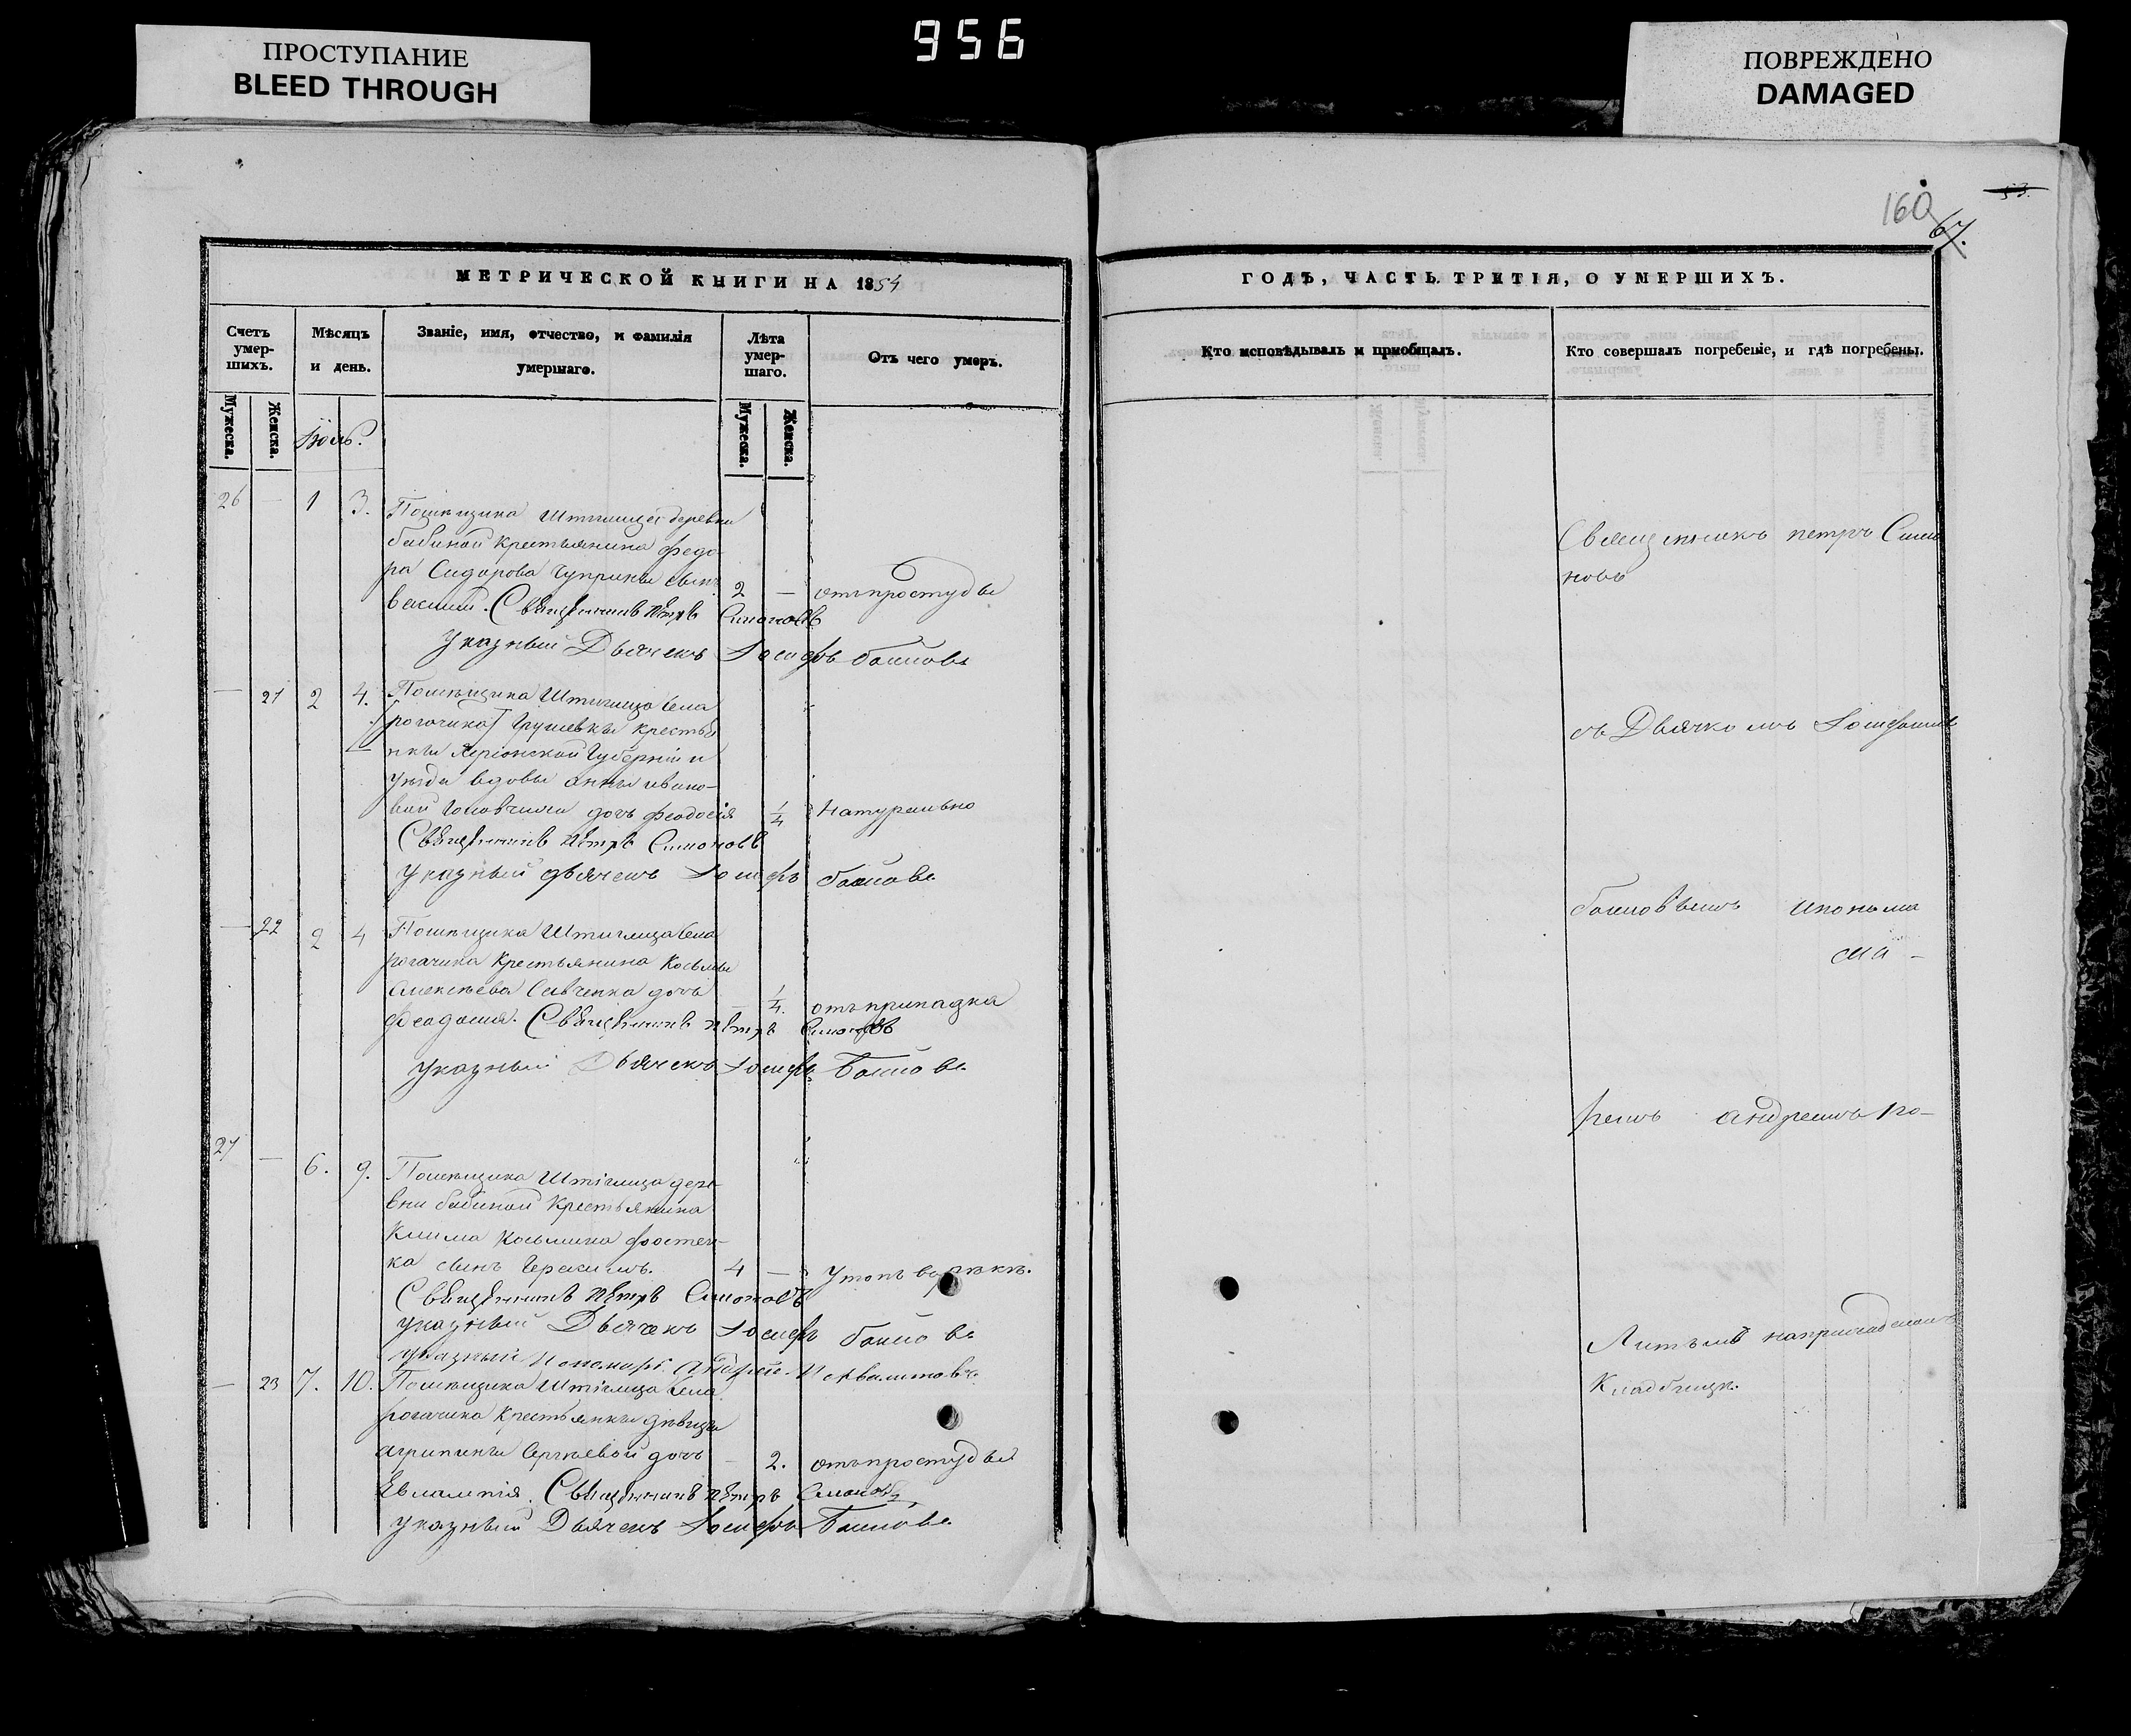 956
ПРОСТУПАНИЕ
BLEED THROUGH
ПОВРЕЖДЕНО
DAMAGED
53.
160
67.
МЕТРИЧЕСКОЙ КНИГИ НА 1854
Счетъ умер-шихъ.
Мѣсяцъ и день.
Званіе, имя, отчество, и фамилія умершаго.
Лѣта умер-шаго.
Отъ чего умеръ.
Мужеска.
Женска.
Мужеска.
Женска.
Іюль.
26 — 1 3. Помѣщика Штиглица деревни
бабиной крестьянина федо-
ра Сидорова Чуприны сынъ
василій. 2 — отъ простуды
Священникъ Петръ Симоновъ
Указный Дьячекъ Іосифъ
— 21 2 4. Помѣщика Штиглица села
рогачика Грушевки крестья
нки Херсонской Губерніи и
уѣзда вдовы анны ивано-
вой дочь феодосія 1/4 Натурально
Священникъ Петръ Симоновъ
Указный дьячекъ Іосифъ
— 22 2 4 Помѣщика Штиглица села
рогачика крестьянина косьмы
алексѣева Савченка дочь
Феодосія. — 1/4. отъ припадка
Священникъ Петръ Симоновъ
Указный Дьячекъ Іосифъ
27 — 6. 9. Помѣщика Штиглица дере-
вни бабиной крестьянина
Клима косьмина
ка сынъ Герасимъ. 4 — Утопъ въ рѣкѣ.
Священникъ Петръ Симоновъ
Указный Дьячекъ Іосифъ
Указный Пономарь Андрей
— 23 7. 10. Помѣщика Штиглица села
рогачика крестьянки дѣвицы
агрипины Сергѣевой дочь
Евлампія. — 2. отъ простуды
Священникъ Петръ Симоновъ
Указный Дьячекъ Іосифъ
ГОДЪ, ЧАСТЬ ТРЕТІЯ, О УМЕРШИХЪ.
Кто исповѣдывалъ и пріобщалъ.
Кто совершалъ погребеніе, и гдѣ погребены.
Священникъ петръ Симо
новъ
съ Дьячкомъ Іосифомъ
и понома
ремъ андреемъ
на приходскомъ
Кладбищѣ.